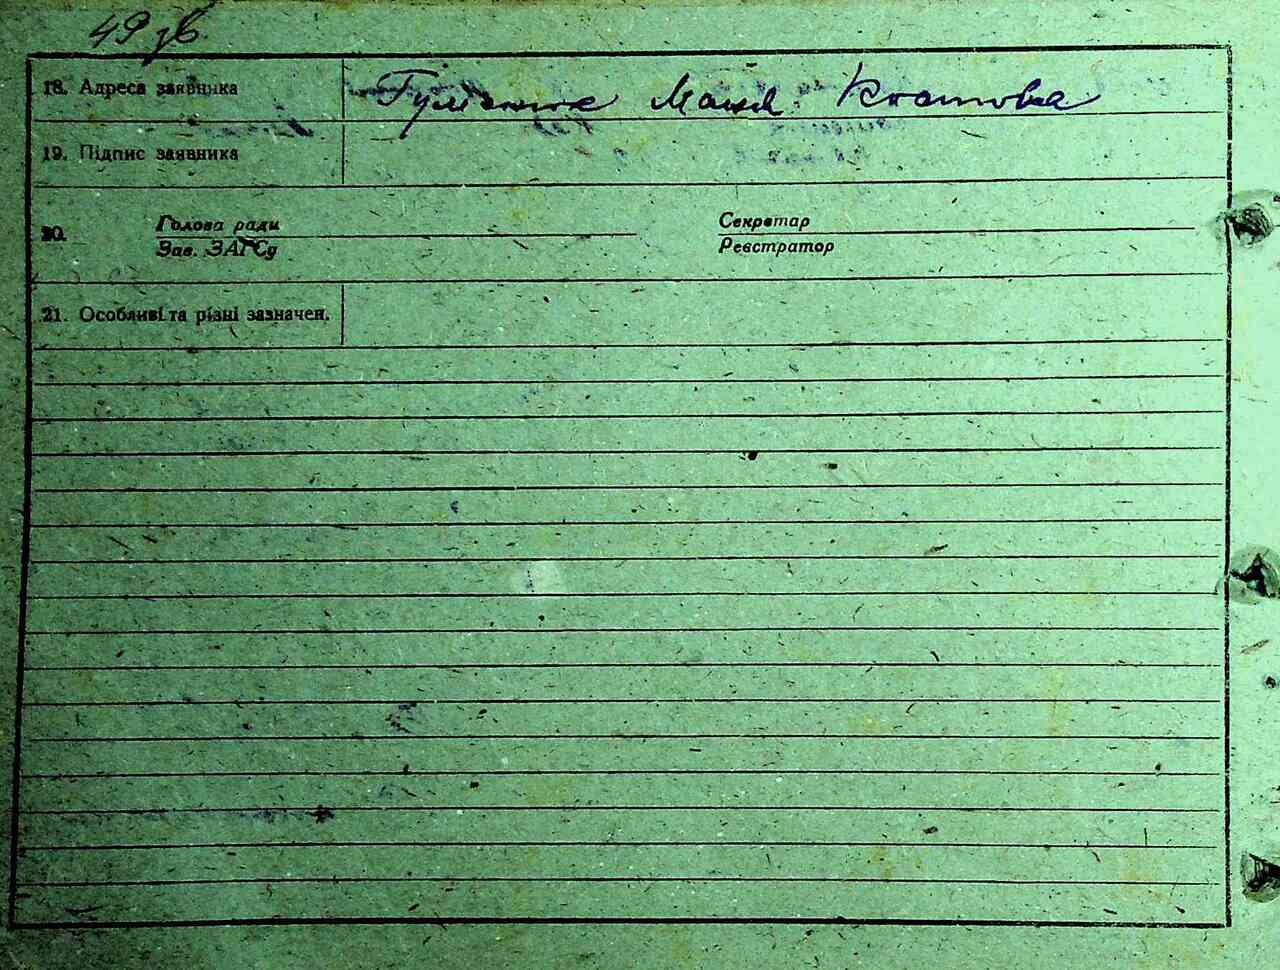 49 зв.
18. Адреса заявника Гуменюк Марія Костова
19. Підпис заявника
20. Голова ради Секретар
Зав. ЗАГСу Реєстратор
21. Особливі та різні зазначен.